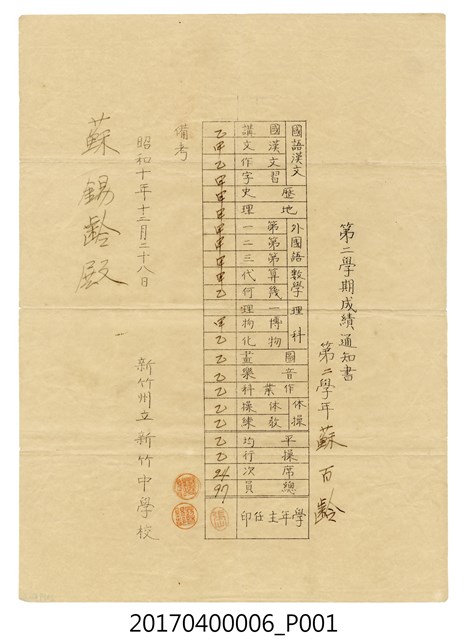 第二學期成績通知書
第二學年 蘇百齡
國語漢文 歷 地 外國語 數學 理科 圖 音 作 体操 平 操 席 總
國 漢 作 習 史 理 第一 第二 第三 算代 幾何 博物 物化 畫 樂 業科 体操 教練 均 行 次 員 學年主任印
講 文 文 字
乙 甲 乙 甲 甲 甲 甲 甲 甲 甲 乙 甲 乙 乙 乙 乙 乙 乙 乙 乙 24 97
備考
昭和十年十二月二十八日
新竹州立新竹中學校
蘇錫齡殿
20170400006_P001